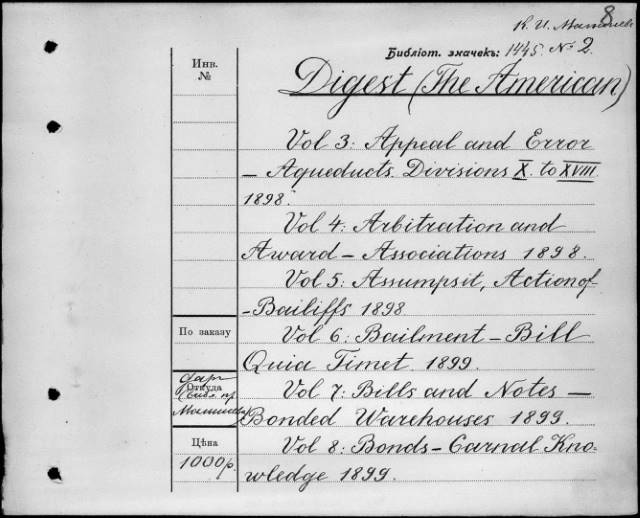 8
К. И.
Библіот. значекъ: 1445. № 2.
Инв.
№
Digest (The American)
Vol 3: Appeal and Error
– Aqueducts. Divisions X. to XVIII.
1898.
Vol 4: Arbitration and
Award – Associations 1898.
Vol 5: Assumpsit, Action of –
– Bailiffs 1898.
По заказу
Vol 6: Bailment – Bill
Quia Timet. 1899.
даръ
Откуда
Vol 7: Bills and Notes –
Bonded Warehouses 1899.
Цѣна
1000 р.
Vol 8: Bonds – Carnal Kno-
wledge 1899.